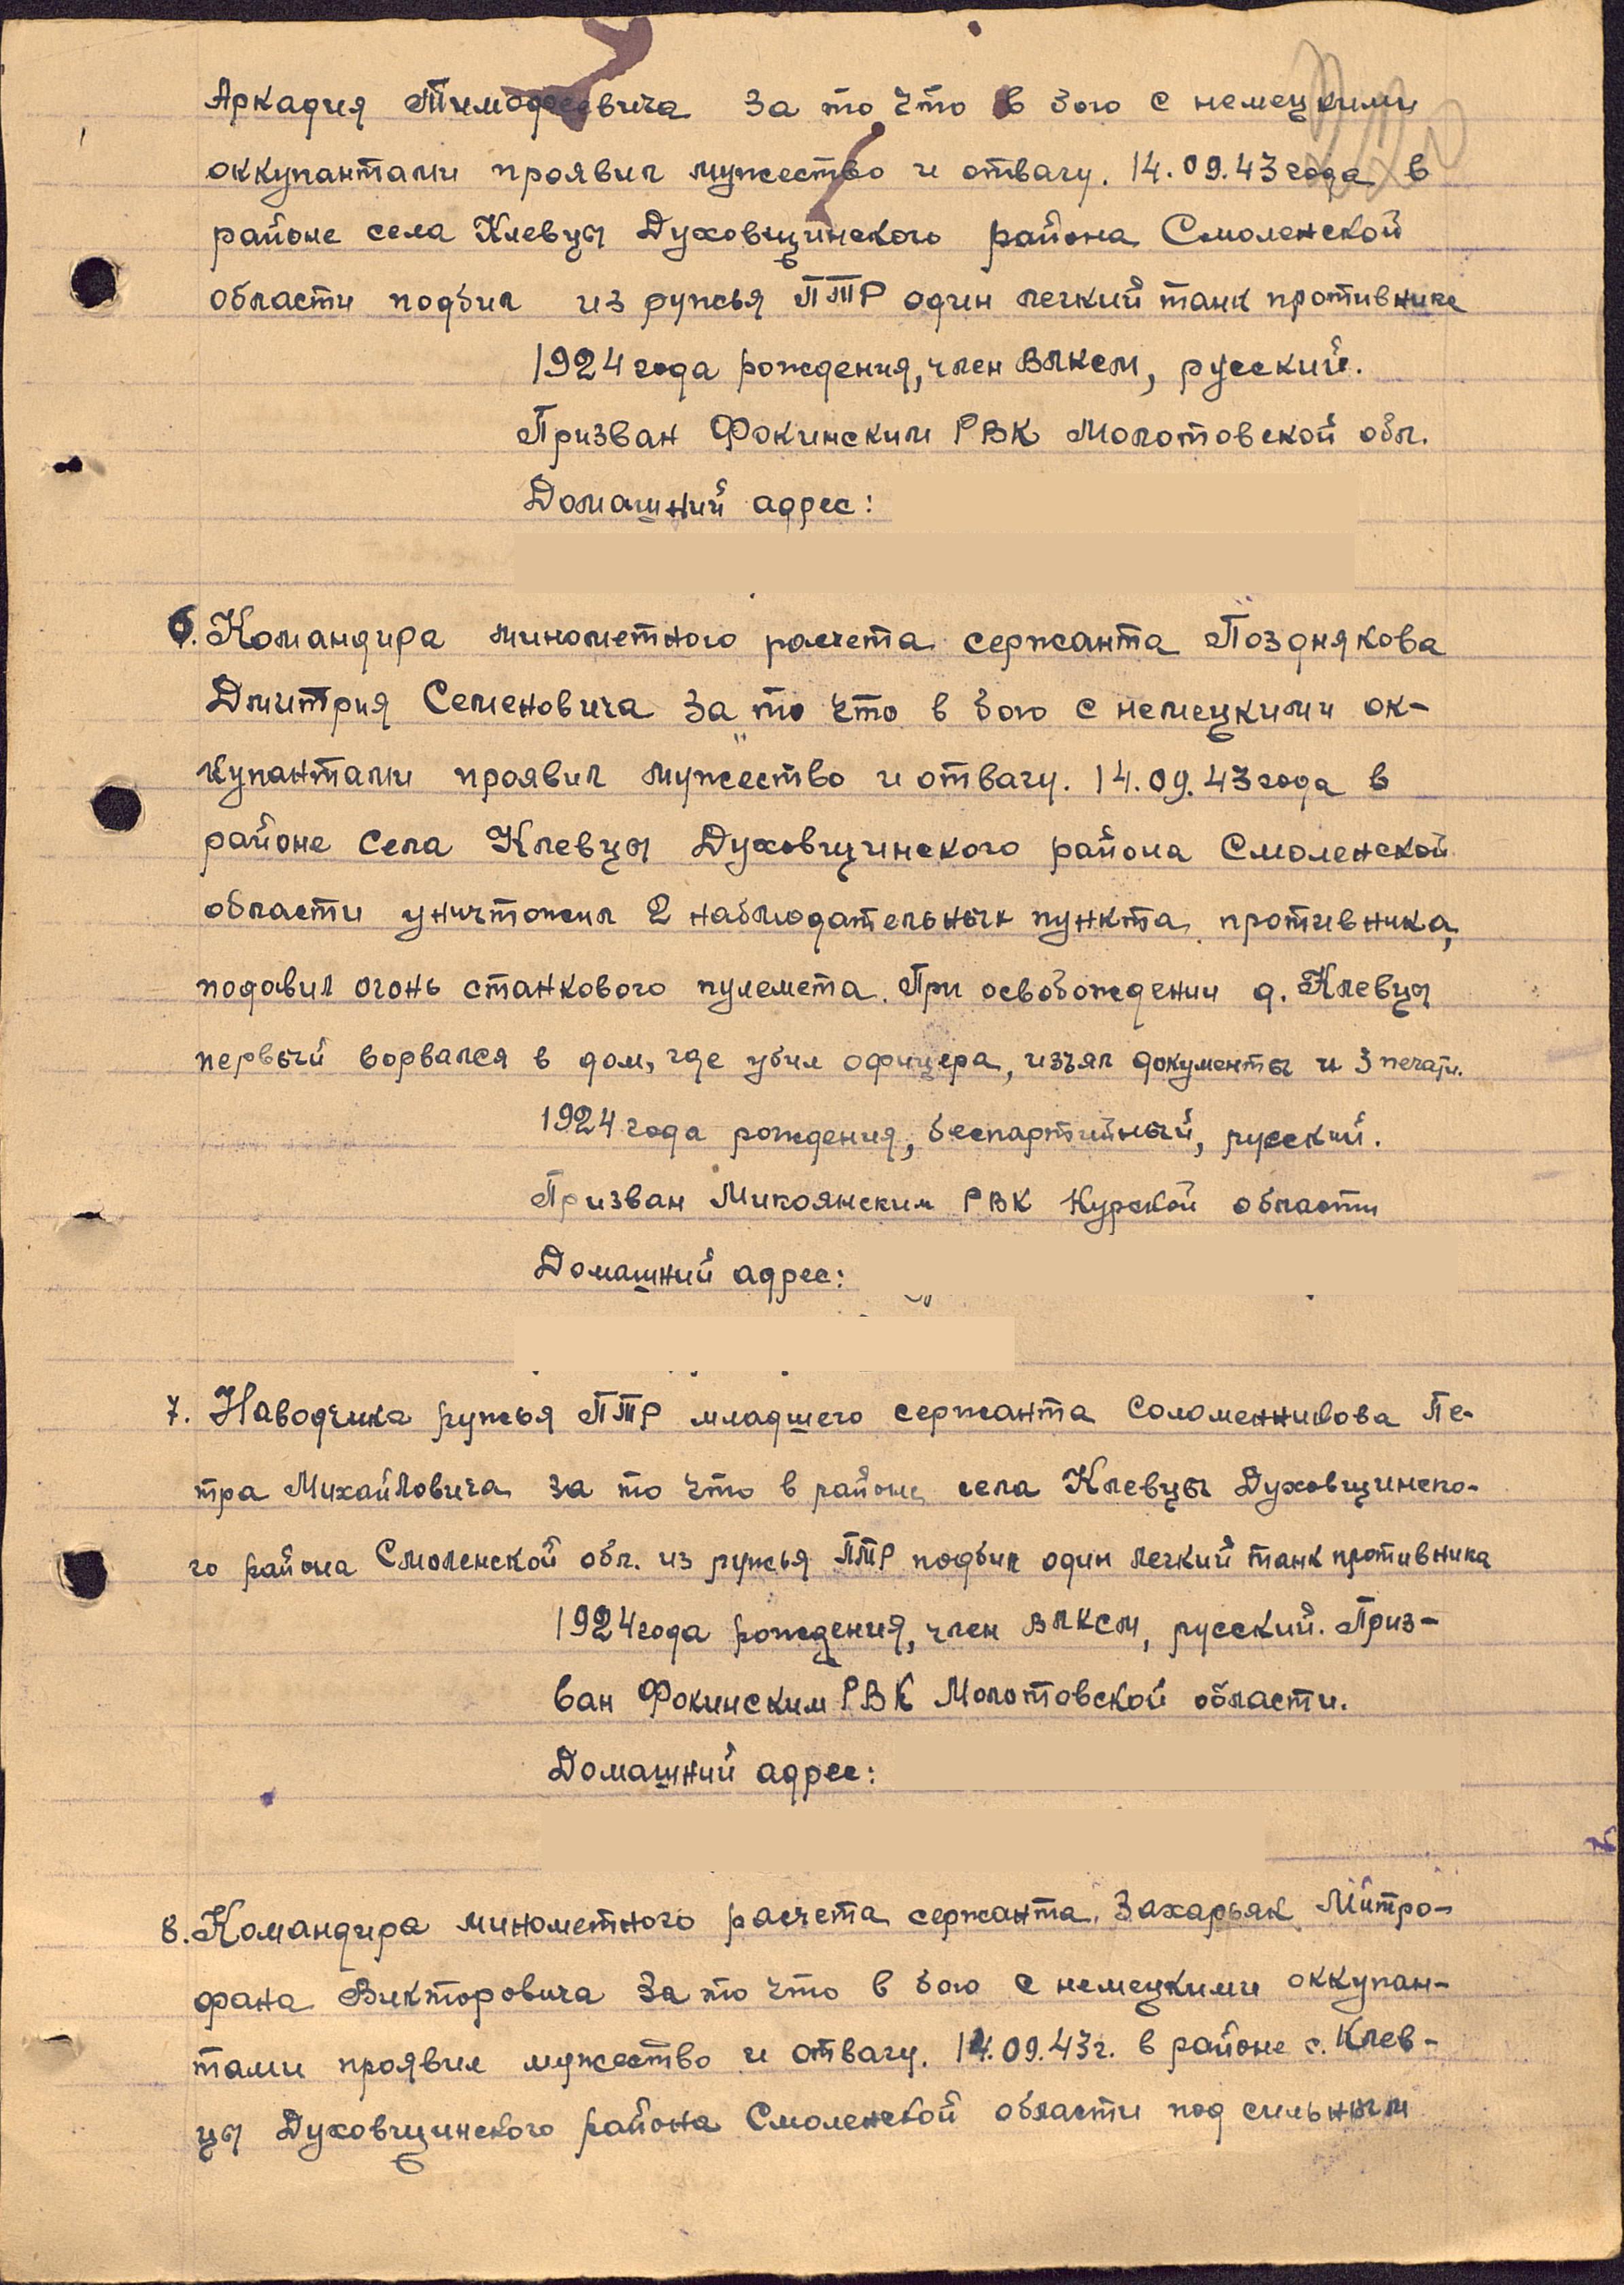 Аркадия Тимофеевича за то что в бою с немецкими
оккупантами проявил мужество и отвагу. 14.09.43 года в
районе села Клевцы Духовщинского района Смоленской
области подбил из ружья ПТР один легкий танк противника
1924 года рождения, член ВЛКСМ, русский.
Призван Фокинским РВК Молотовской обл.
Домашний адрес:
6. Командира минометного расчета сержанта Позднякова
Дмитрия Семеновича за то что в бою с немецкими ок-
купантами проявил мужество и отвагу. 14.09.43 года в
районе села Клевцы Духовщинского района Смоленской
области уничтожил 2 наблюдательных пункта противника,
подавил огонь станкового пулемета. При освобождении д. Клевцы
первый ворвался в дом, где убил офицера, изъял документы и 3 печати.
1924 года рождения, беспартийный, русский.
Призван Микоянским РВК Курской области
Домашний адрес:
7. Наводчика ружья ПТР младшего сержанта Соломенникова Пе-
тра Михайловича за то что в районе села Клевцы Духовщинско-
го района Смоленской обл. из ружья ПТР подбил один легкий танк противника
1924 года рождения, член ВЛКСМ, русский. Приз-
ван Фокинским РВК Молотовской области.
Домашний адрес:
8. Командира минометного расчета сержанта Захарьяк Митро-
фана Викторовича за то что в бою с немецкими оккупан-
тами проявил мужество и отвагу. 14.09.43г. в районе с. Клев-
цы Духовщинского района Смоленской области под сильным